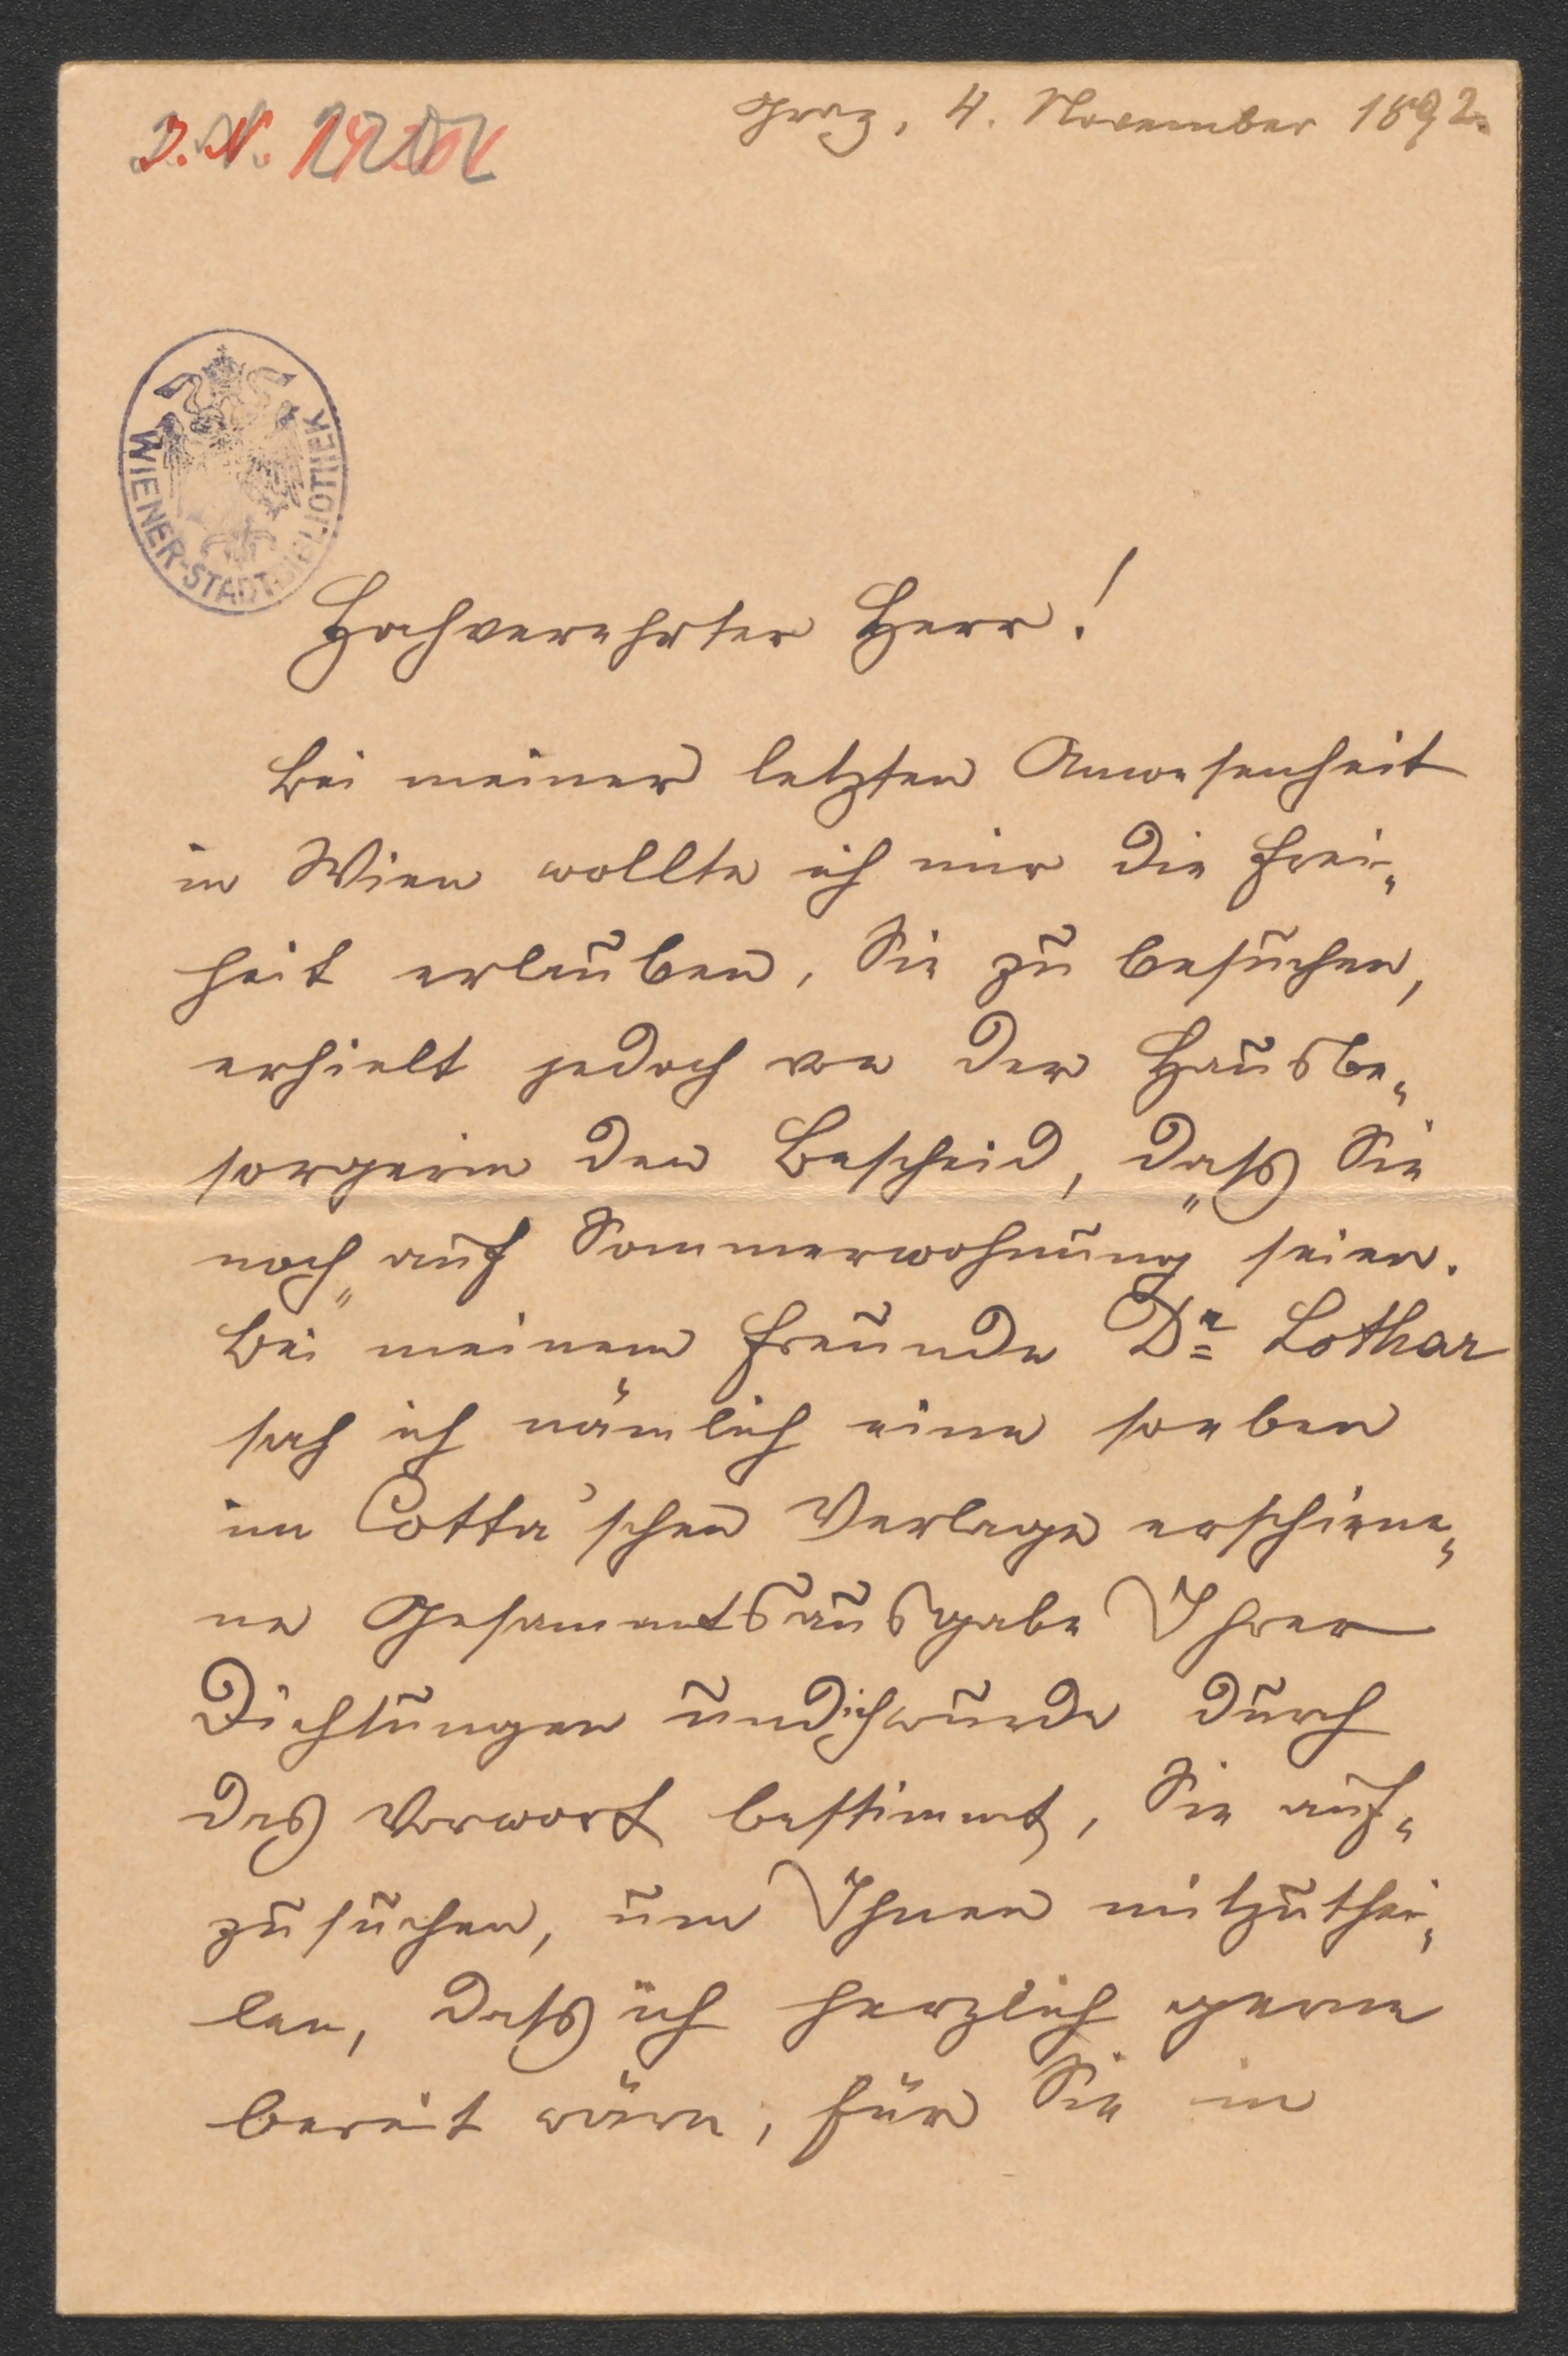 Graz, 4. November 1892.
J. N.
WIENER-STADT-BIBLIOTHEK
Hochverehrter Herr!
Bei meiner letzten Anwesenheit
in Wien wollte ich mir die Frei-
heit erlauben, Sie zu besuchen,
erhielt jedoch von der Hausbe-
sorgerin den Bescheid, daß Sie
noch „auf Sommerwohnung“ seien.
Bei meinem Freunde Dr. Lothar
sah ich nämlich eine soeben
im Cotta'schen Verlage erschiene-
ne Gesammtsausgabe Ihrer
Dichtungen und ich wurde durch
das Vorwort bestimmt, Sie auf-
zusuchen, um Ihnen mitzuthei-
len, daß ich herzlich gerne
bereit wäre, für Sie in